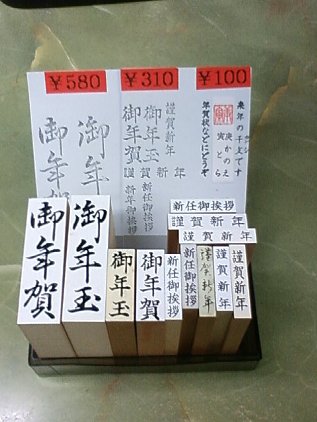 ¥580
¥310
¥100
御年玉
御年賀
謹賀新年
御年玉
御年賀
謹賀新年
新任御挨拶
新年御挨拶
来年の干支です
庚かのえ
寅とら
年賀状などにどうぞ
新任御挨拶
謹賀新年
謹賀新年
御年賀
御年玉
御年玉
御年賀
新任御挨拶
新任御挨拶
謹賀新年
謹賀新年
謹賀新年